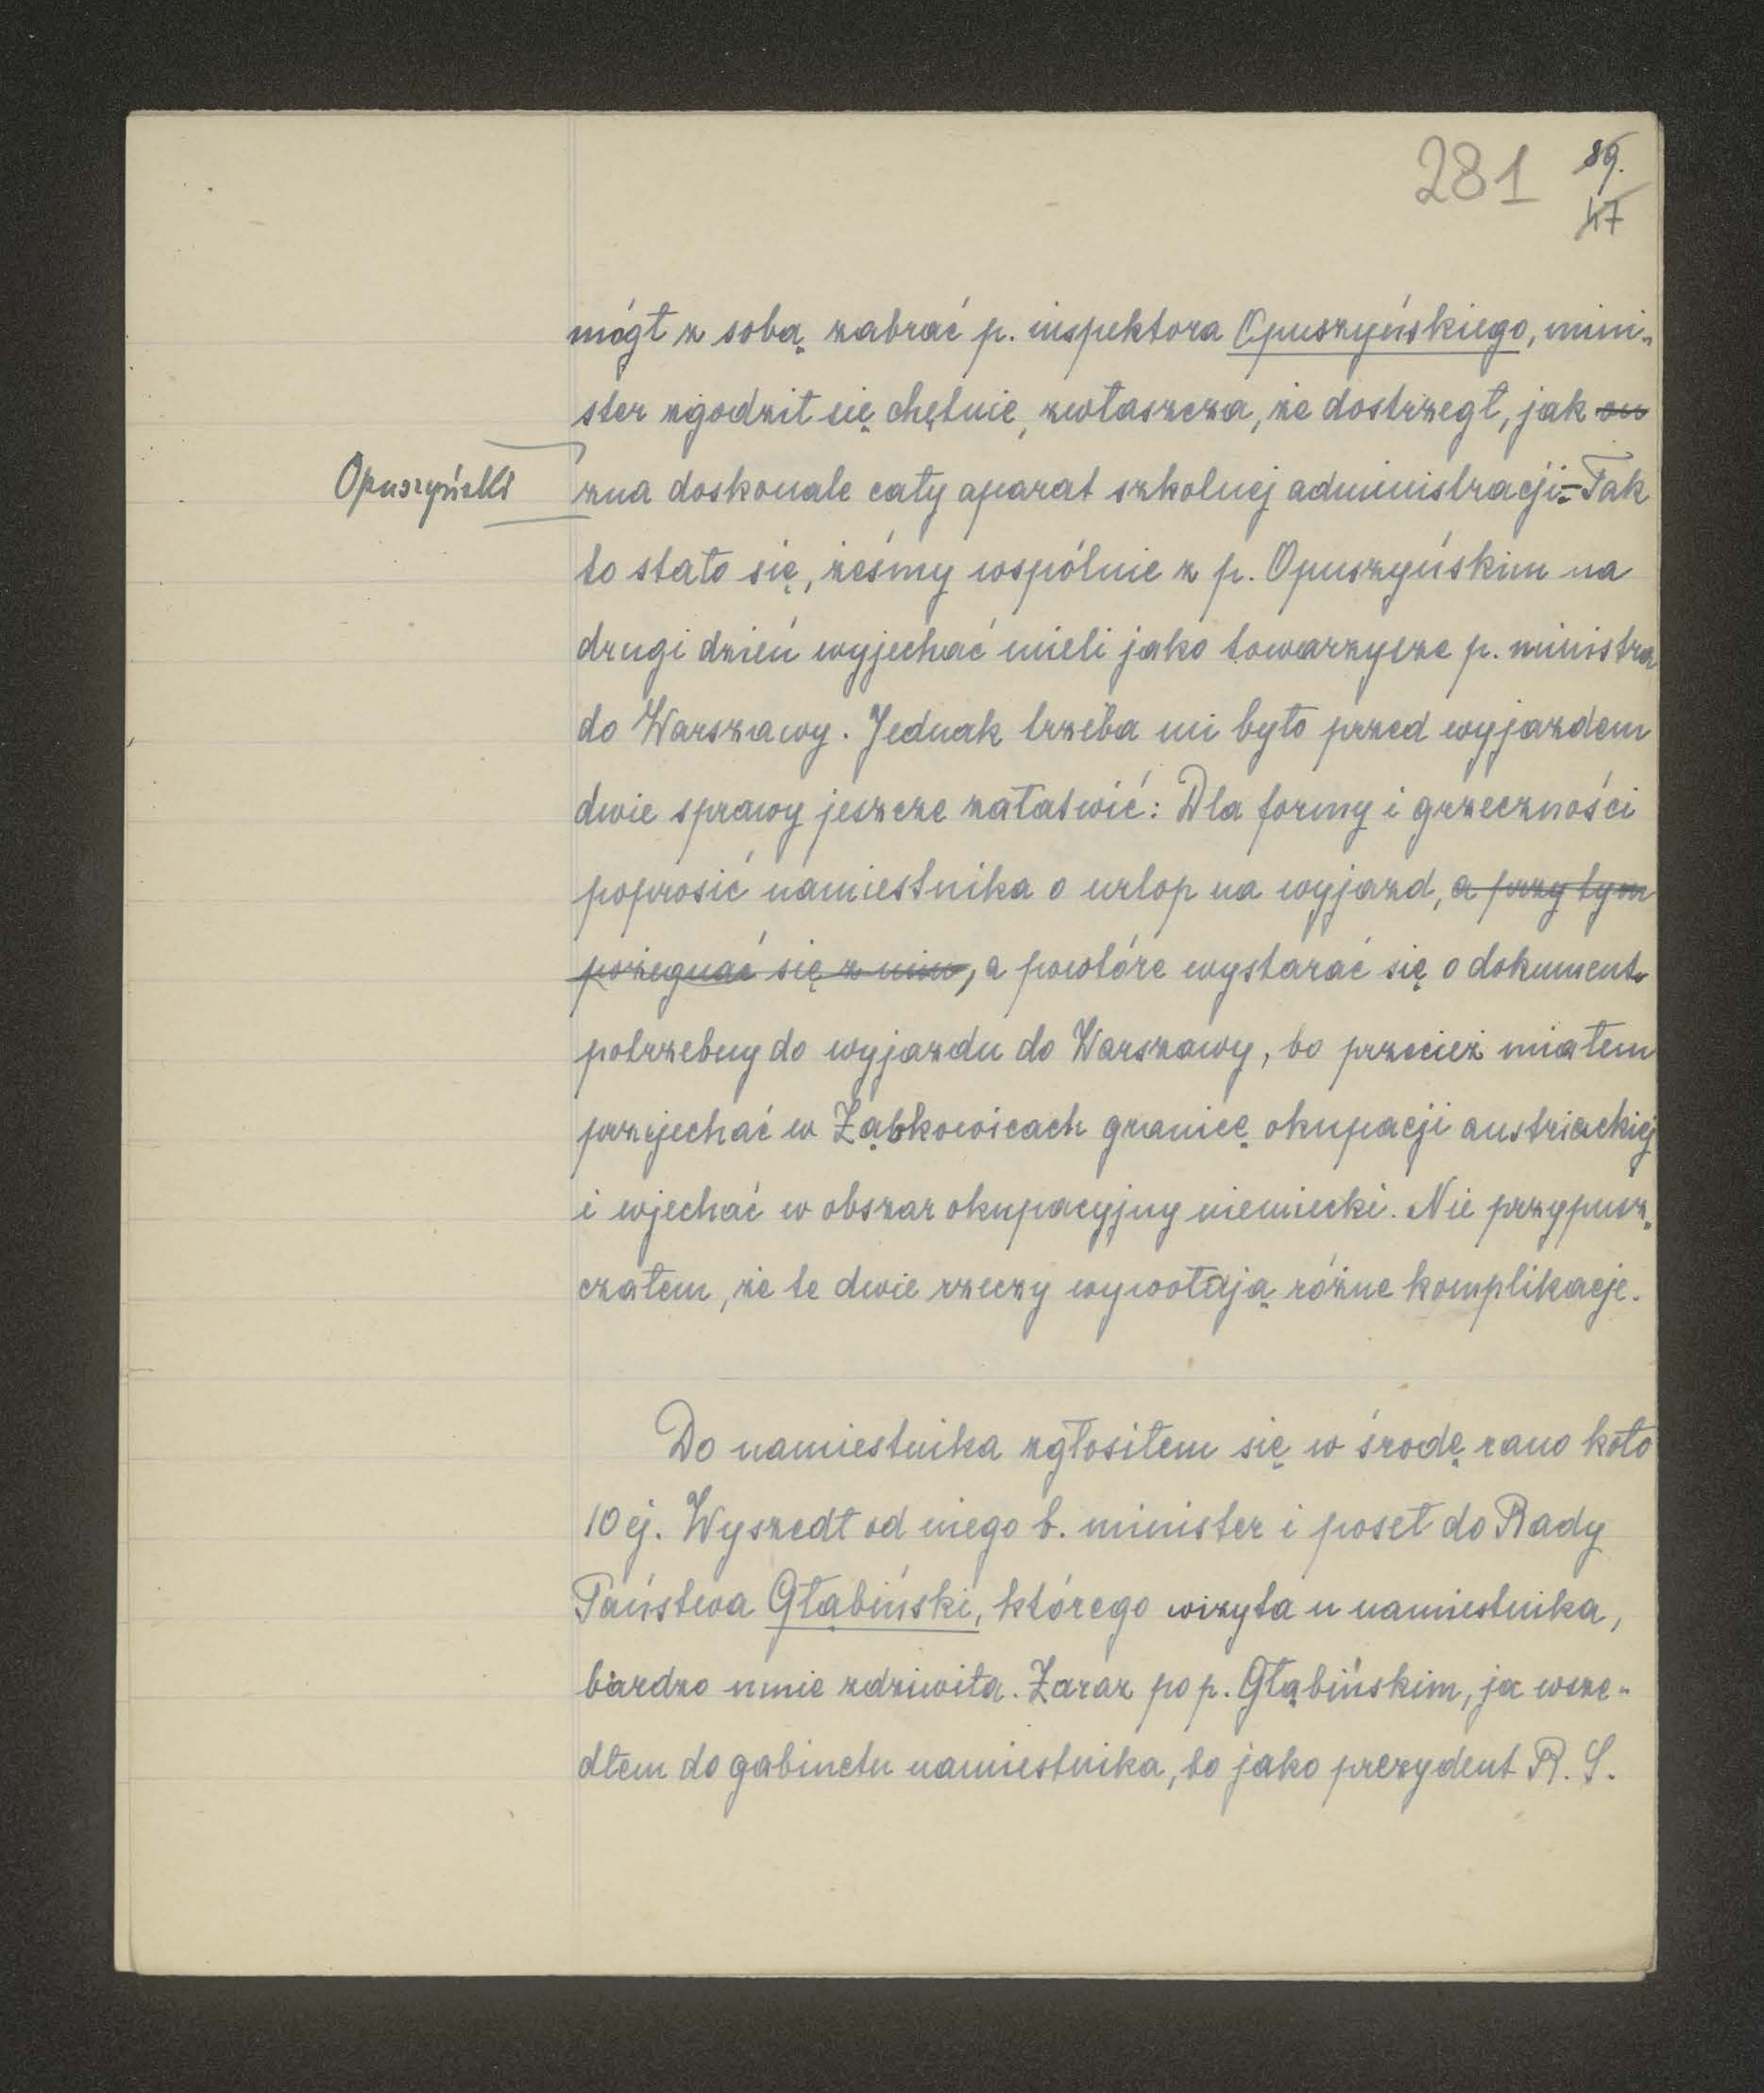 281 89.
47
mógł z sobą zabrać p. inspektora Opuszyńskiego, mini-
ster zgodził się chętnie, zwłaszcza, że dostrzegł, jak on
Opuszyński
zna doskonale cały aparat szkolnej administracji. – Tak
to stało się, żeśmy wspólnie z p. Opuszyńskim na
drugi dzień wyjechać mieli jako towarzysze p. ministra
do Warszawy. Jednak trzeba mi było przed wyjazdem
dwie sprawy jeszcze załatwić: Dla formy i grzeczności
poprosić namiestnika o urlop na wyjazd, a przy tym
pożegnać się z nim, a powtóre wystarać się o dokument
potrzebny do wyjazdu do Warszawy, bo przecież miałem
przejechać w Ząbkowicach granicę okupacji austriackiej
i wjechać w obszar okupacyjny niemiecki. Nie przypusz-
czałem, że te dwie rzeczy wywołają różne komplikacje.
Do namiestnika zgłosiłem się w środę rano koło
10 ej. Wyszedł od niego b. minister i poseł do Rady
Państwa Głąbiński, którego wizyta u namiestnika,
bardzo mnie zdziwiła. Zaraz po p. Głąbińskim, ja wsze-
dłem do gabinetu namiestnika, bo jako prezydent R. S.